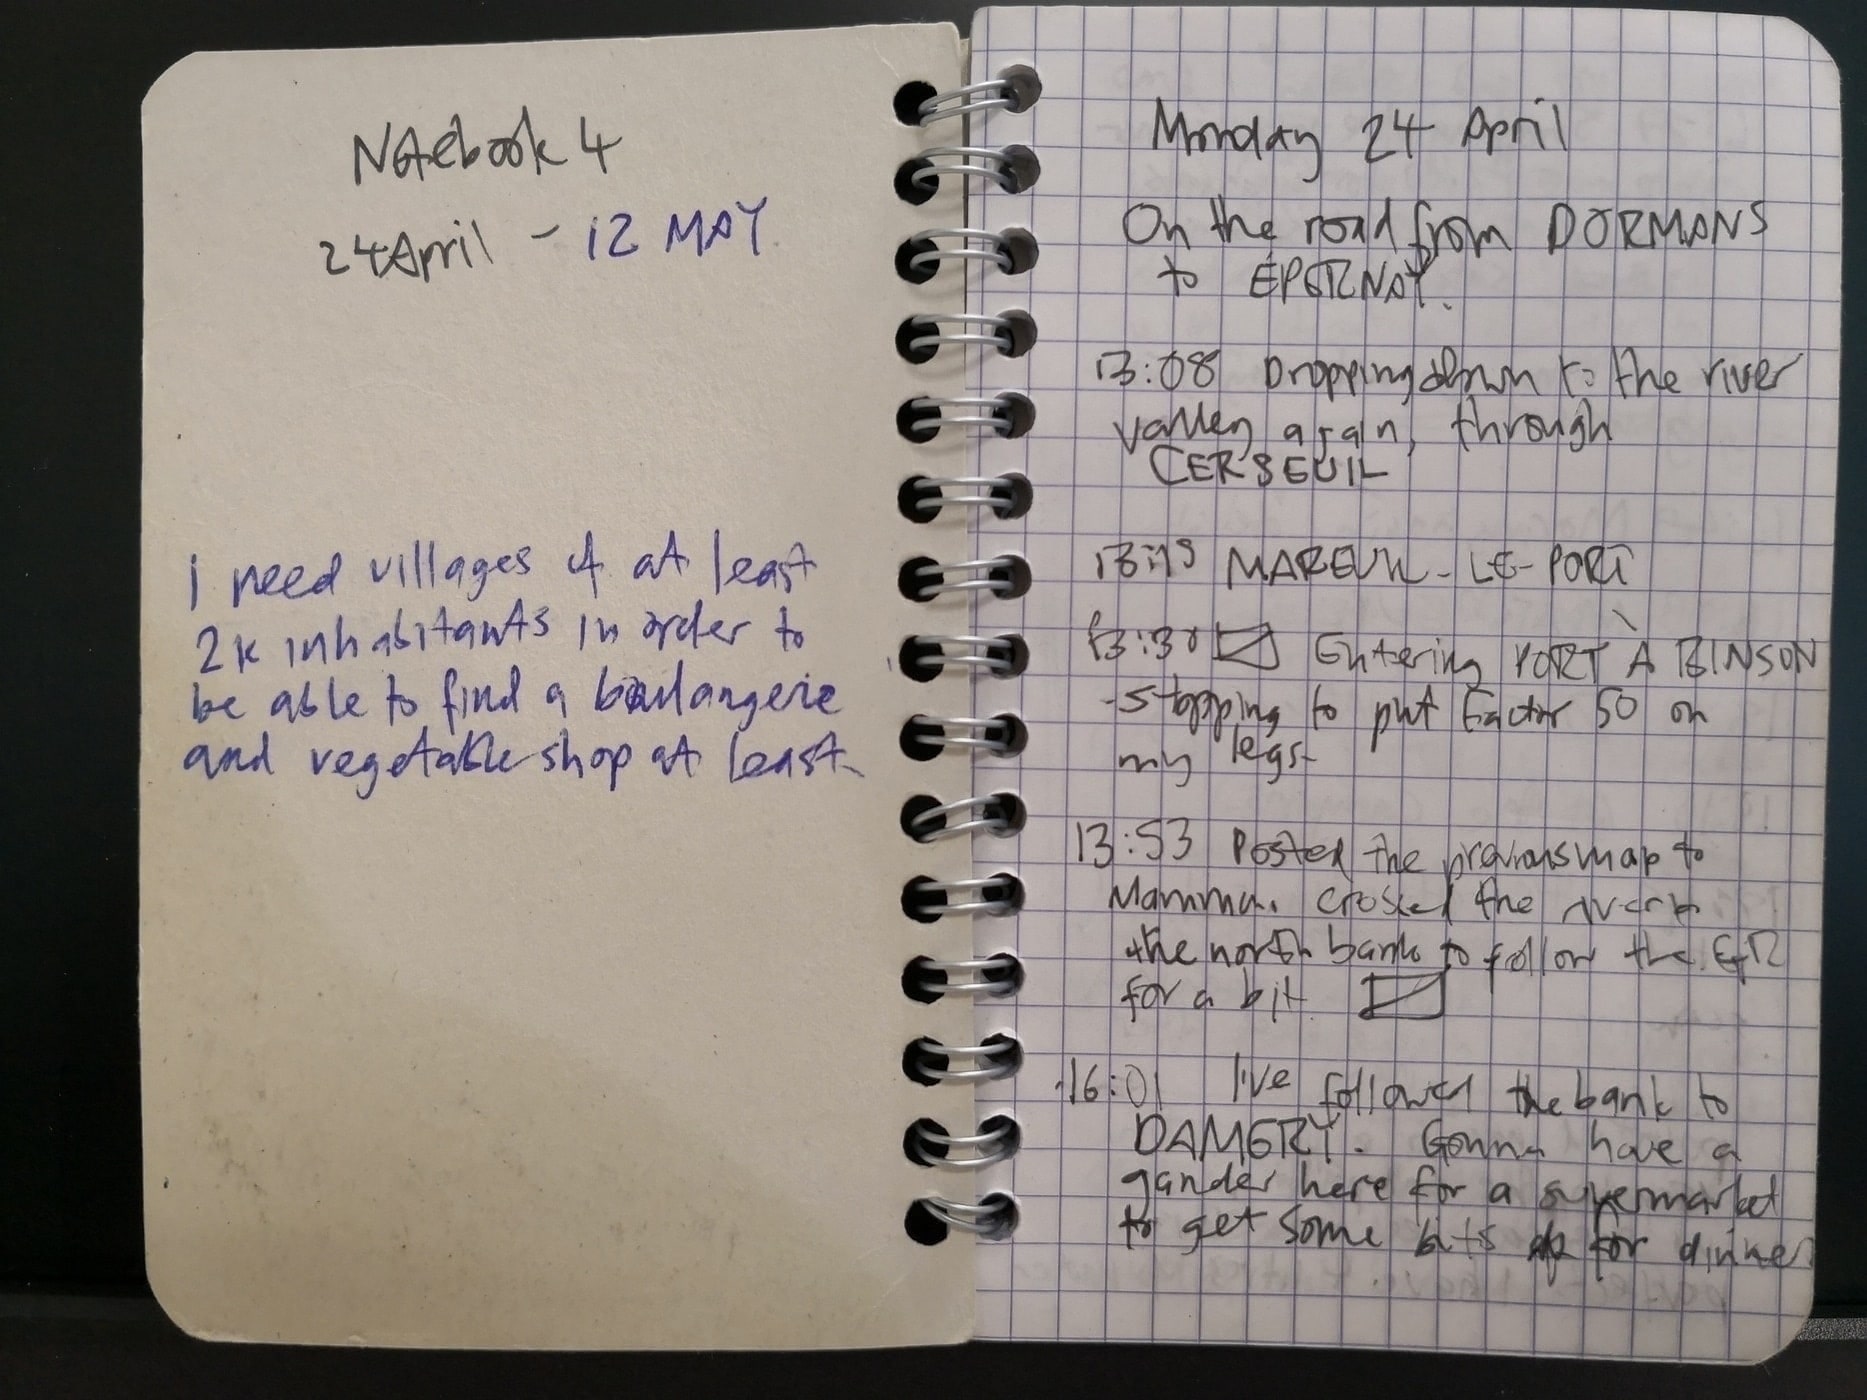 Notebook 4
24 April - 12 MAY
I need villages of at least
2k inhabitants in order to
be able to find a boulangerie
and vegetable shop at least.
Monday 24 April
On the road from DORMANS
to ÉPERNAY.
13:08 Dropping down to the river
valley again, through
CERSEUIL
13:15 MAREUIL-LE-PORT
13:30 Entering PORT À BINSON
- stopping to put Factor 50 on
my legs.
13:53 Posted the previous map to
Mamma. Crossed the river to
the north bank to follow the GR
for a bit.
16:01 I've followed the bank to
DAMERY. Gonna have a
gander here for a supermarket
to get some bits for dinner.